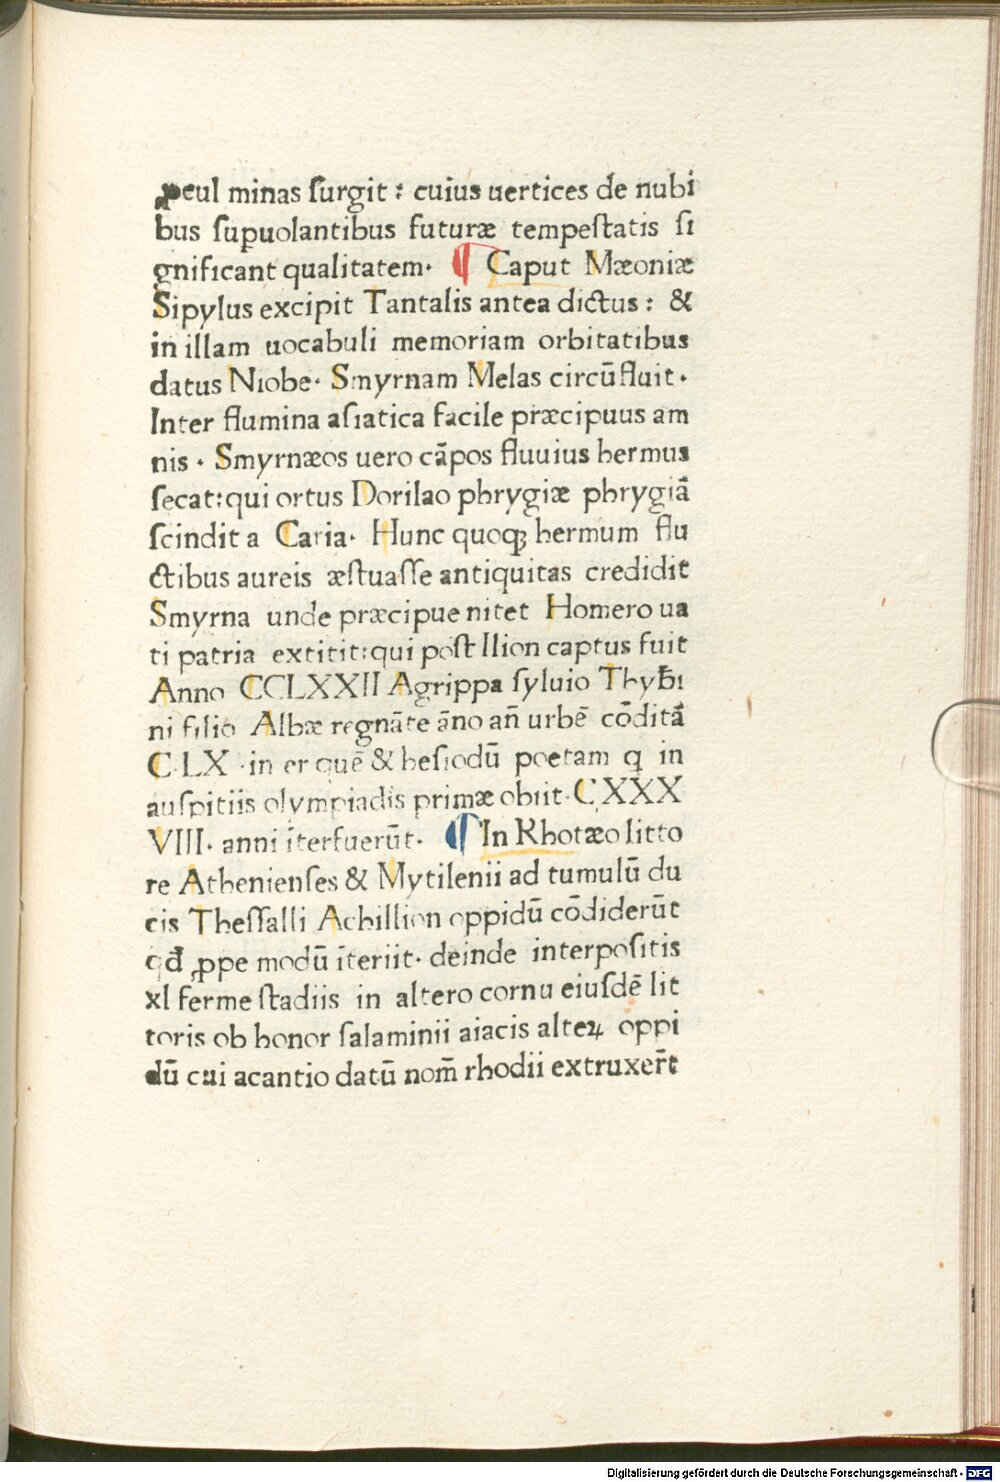 ꝓcul minas ſurgit : cuius uertices de nubi
bus ſupuolantibus futuræ tempeſtatis ſi
gnificant qualitatem · ¶ Caput Mæoniæ
Sipylus excipit Tantalis antea dictus : &
in illam uocabuli memoriam orbitatibus
datus Niobe · Smyrnam Melas circūfluit ·
Inter flumina aſiatica facile præcipuus am
nis · Smyrnæos uero cāpos fluuius hermus
ſecat:qui ortus Dorilao phrygiæ phrygiā
ſcindit a Caria · Hunc quoqꝫ hermum flu
ctibus aureis æſtuaſſe antiquitas credidit
Smyrna unde præcipue nitet Homero ua
ti patria extitit:qui poſt Ilion captus fuit
Anno CCLXXII Agrippa ſyluio Thyb̄i
ni filio Albæ regnāte āno an̄ urbē cōditā
C·LX · in er quē & heſiodū poetam q in
auſpitiis olympiadis primæ obiit · CXXX
VIII · anni īterfuerūt · ¶ In Rhotæo litto
re Athenienſes & Mytilenii ad tumulū du
cis Theſſalli Achillion oppidū cōdiderūt
qd̄ ꝓpe modū īteriit · deinde interpoſitis
xl ferme ſtadiis in altero cornu eiuſdē lit
toris ob honor ſalaminii aiacis alteꝝ oppi
dū cui acantio datū nom̄ rhodii extruxer̄t
Digitalisierung gefördert durch die Deutsche Forschungsgemeinschaft - DFG